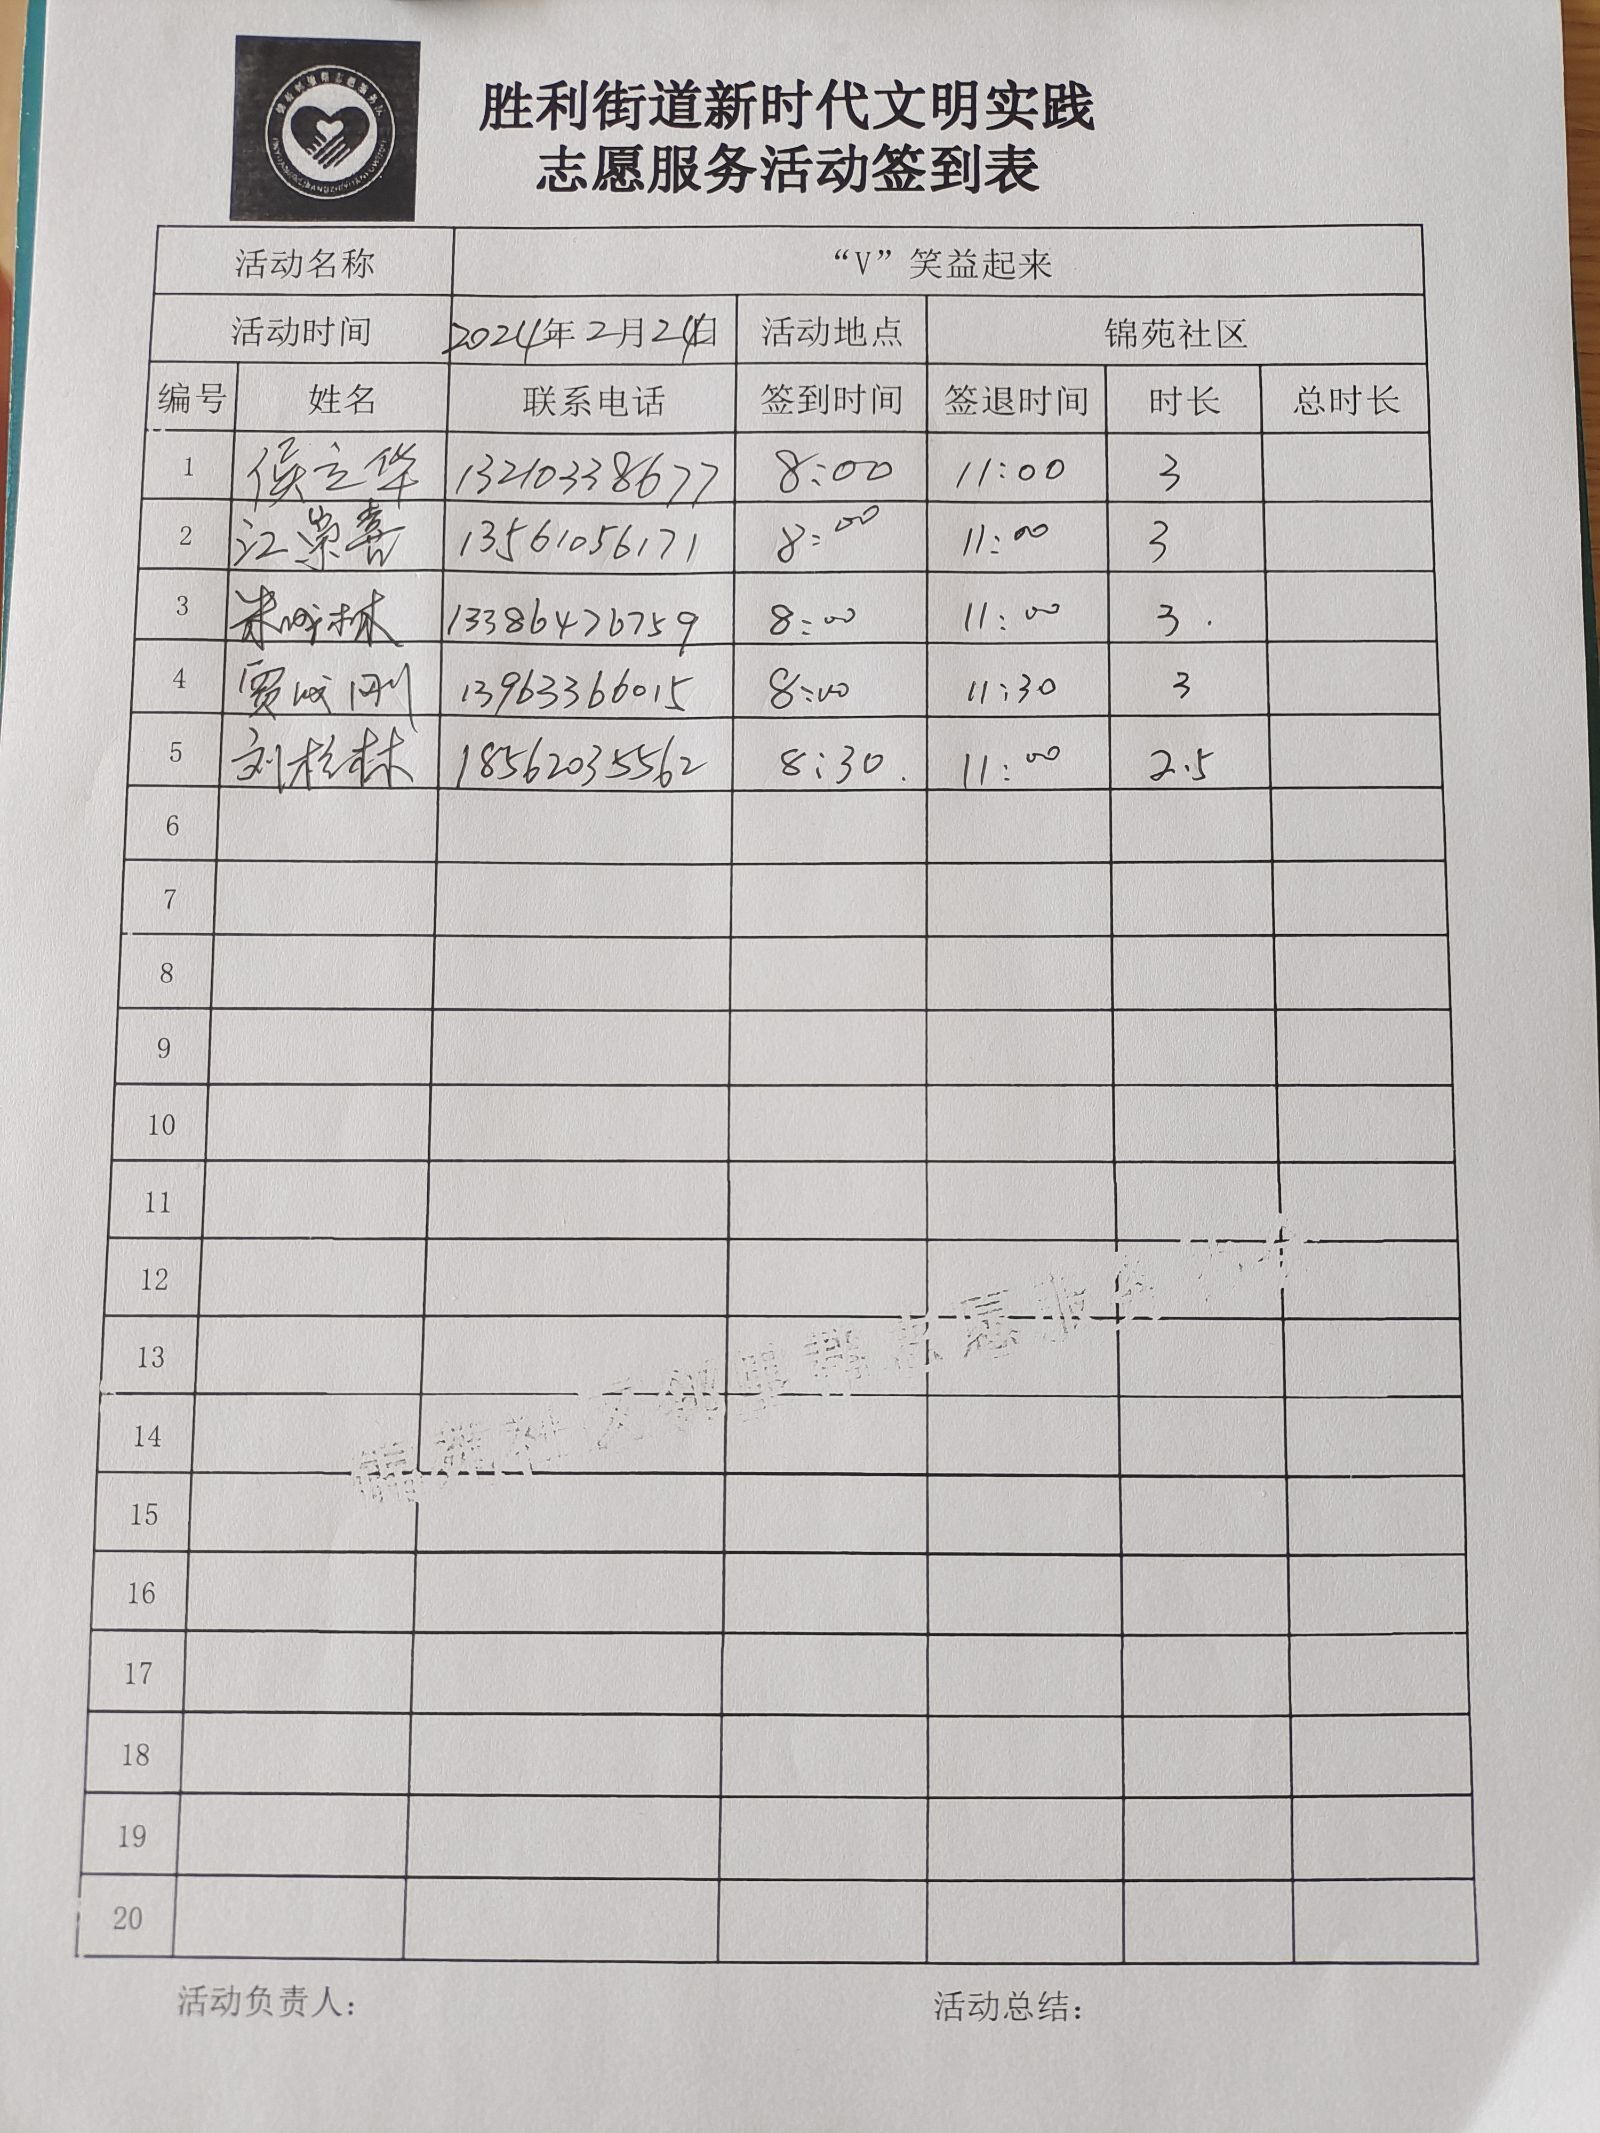 胜利街道新时代文明实践
志愿服务活动签到表
活动名称 “V”笑益起来
活动时间 2024年2月24日 活动地点 锦苑社区
编号 姓名 联系电话 签到时间 签退时间 时长 总时长
1 侯立华 13210338677 8:00 11:00 3
2 江崇喜 13561056171 8:00 11:00 3
3 林 13386476759 8:00 11:00 3.
4 贾成刚 13963366015 8:00 11:30 3
5 刘松林 18562035562 8:30. 11:00 2.5
6
7
8
9
10
11
12
13
14
15
16
17
18
19
20
锦苑社区邻里帮志愿服务
活动负责人: 活动总结: